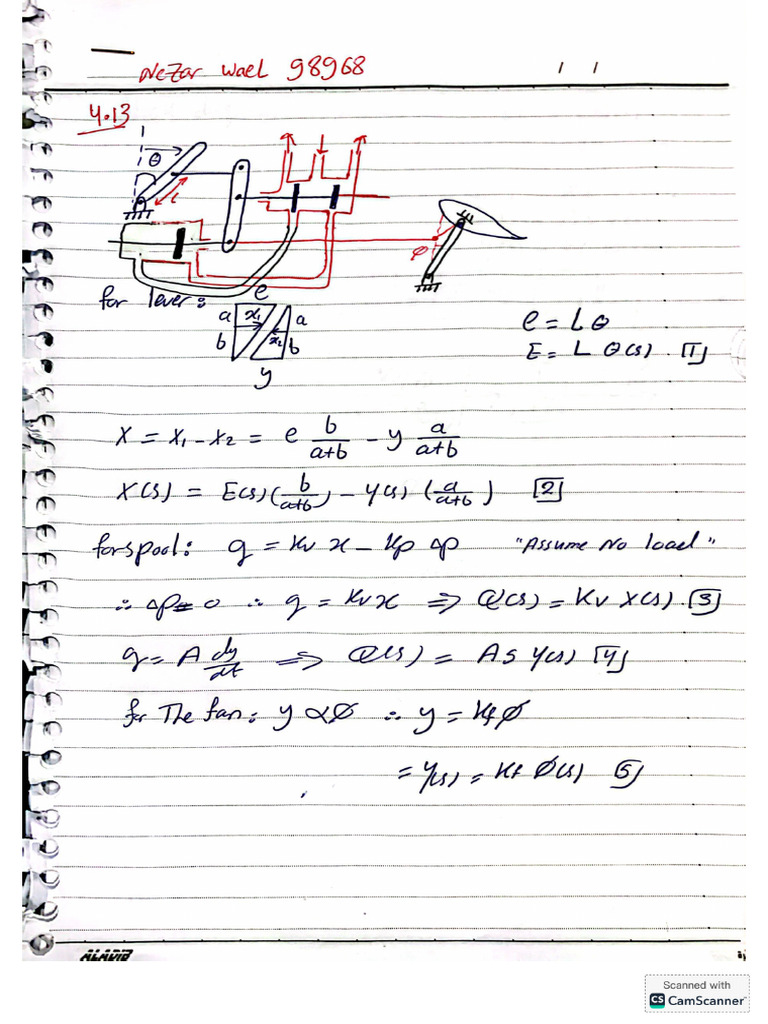 Nezar Wael 98968 / /
4.13
θ
L
φ
for lever:
e
a x₁ a
b x₂ b
y
e = L θ
E = L θ(s) [1]
X = X₁ - X₂ = e b/(a+b) - y a/(a+b)
X(s) = E(s) (b/(a+b)) - Y(s) (a/(a+b)) [2]
for spool: q = Kv x - Kp Δp "Assume No load"
∴ Δp = 0 ∴ q = Kv x ⇒ Q(s) = Kv X(s) [3]
q = A dy/dt ⇒ Q(s) = A s Y(s) [4]
for The fan: y ∝ Ø ∴ y = Kf Ø
= Y(s) = Kf Ø(s) [5]
ALADIB
Scanned with
CS CamScanner